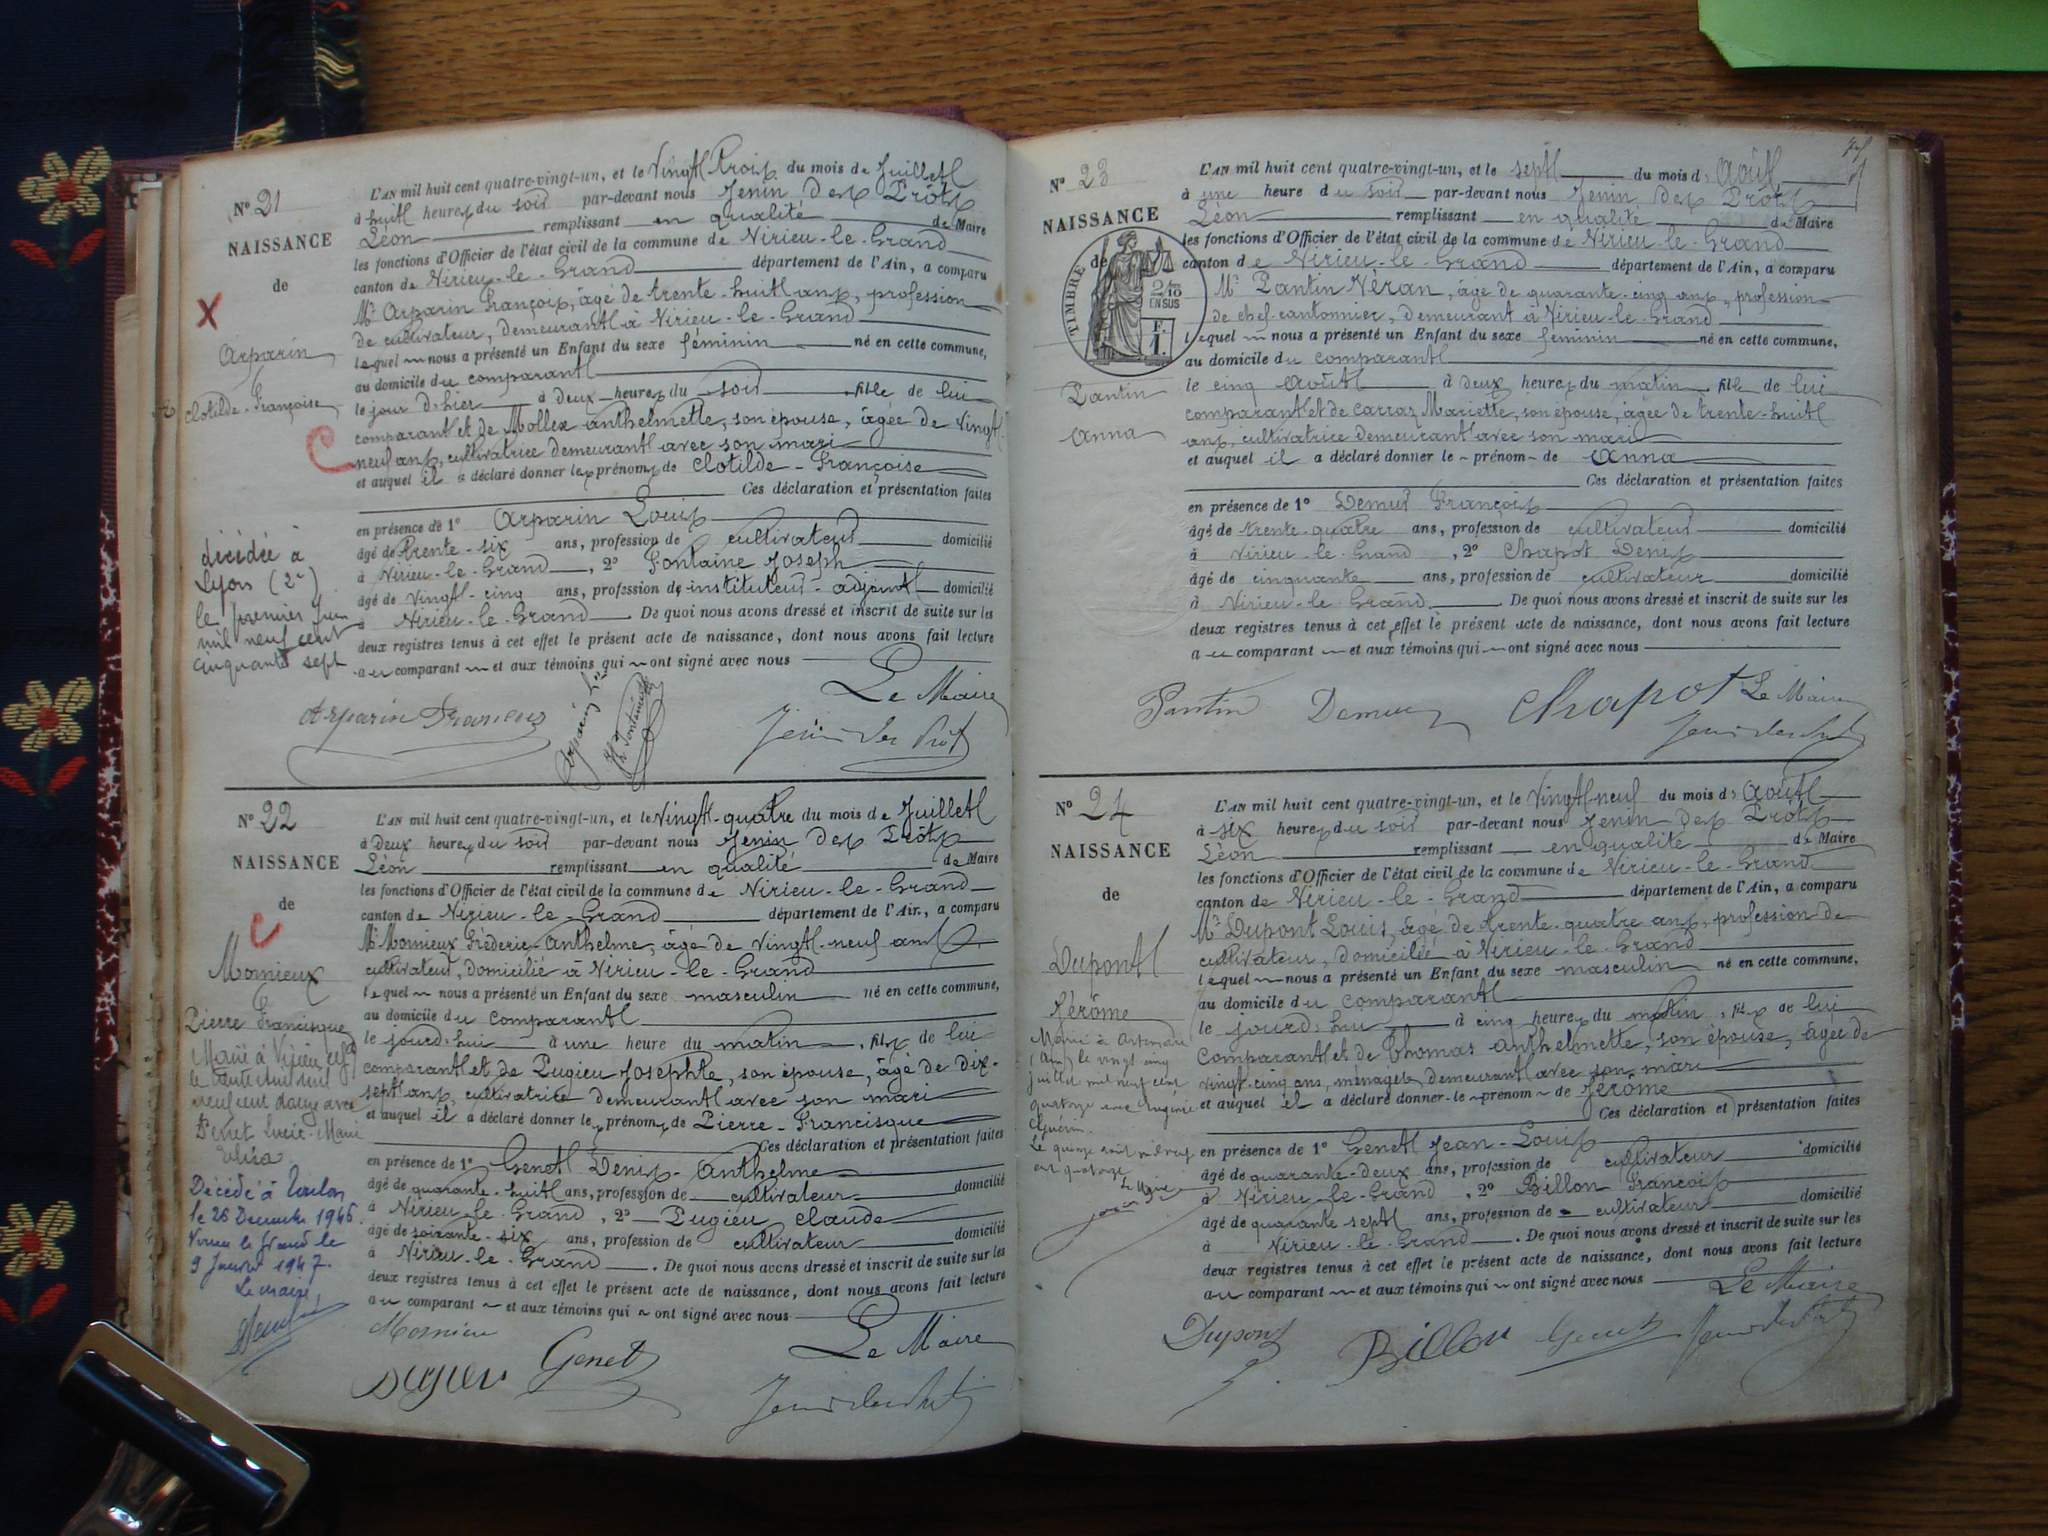 N° 21
NAISSANCE
de
Arparin
Clotilde-Françoise
décédée à
Lyon (2e)
le premier juin
mil neuf cent
cinquante sept
L'AN mil huit cent quatre-vingt-un, et le Vingt Trois du mois de Juillet
à huit heures du soir par-devant nous Jenin des Prôts
Léon remplissant en qualité de Maire
les fonctions d'Officier de l'état civil de la commune de Virieu-le-Grand
canton de Virieu-le-Grand département de l'Ain, a comparu
Mr Arparin François, âgé de trente-huit ans, profession
de cultivateur, demeurant à Virieu-le-Grand
lequel nous a présenté un Enfant du sexe féminin né en cette commune,
au domicile du comparant
le jour d'hier à deux heures du soir fille de lui
comparant et de Mollex Anthelmette, son épouse, âgée de Vingt
neuf ans, cultivatrice demeurant avec son mari
et auquel il a déclaré donner les prénoms de Clotilde-Françoise
Ces déclaration et présentation faites
en présence de 1° Arparin Louis
âgé de trente-six ans, profession de cultivateur domicilié
à Virieu-le-Grand, 2° Fontaine Joseph
âgé de vingt-cinq ans, profession de instituteur-adjoint domicilié
à Virieu-le-Grand. De quoi nous avons dressé et inscrit de suite sur les
deux registres tenus à cet effet le présent acte de naissance, dont nous avons fait lecture
au comparant et aux témoins qui ont signé avec nous
Le Maire
Arparin François
Jenin des Prôts
N° 22
NAISSANCE
de
Mornieux
Pierre Francisque
Marié à Virieu
Décédé à Toulon
le 26 Décembre 1946.
Virieu le Grand le
9 Janvier 1947.
Le maire,
L'AN mil huit cent quatre-vingt-un, et le Vingt-quatre du mois de Juillet
à Deux heures du soir par-devant nous Jenin des Prôts
Léon remplissant en qualité de Maire
les fonctions d'Officier de l'état civil de la commune de Virieu-le-Grand
canton de Virieu-le-Grand département de l'Ain, a comparu
Mr Mornieux Fréderic-Anthelme, âgé de Vingt-neuf ans
cultivateur, domicilié à Virieu-le-Grand
lequel nous a présenté un Enfant du sexe masculin né en cette commune,
au domicile du comparant
le jourd'hui à une heure du matin, fils de lui
comparant et de Pugieu Josephte, son épouse, âgé de dix-
sept ans, cultivatrice demeurant avec son mari
et auquel il a déclaré donner les prénoms de Pierre-Francisque
Ces déclaration et présentation faites
en présence de 1° Genet Denis-Anthelme
âgé de quarante-huit ans, profession de cultivateur domicilié
à Virieu-le-Grand, 2° Pugieu Claude
âgé de soixante-six ans, profession de cultivateur domicilié
à Virieu-le-Grand. De quoi nous avons dressé et inscrit de suite sur les
deux registres tenus à cet effet le présent acte de naissance, dont nous avons fait lecture
au comparant et aux témoins qui ont signé avec nous
Le Maire
Mornieu
Pugieu Genet
Jenin des Prôts
N° 23
NAISSANCE
de
TIMBRE
2/10
EN SUS
F.
1.
Pantin
Anna
L'AN mil huit cent quatre-vingt-un, et le sept du mois d'Août
à une heure du soir par-devant nous Jenin des Prôts
Léon remplissant en qualité de Maire
les fonctions d'Officier de l'état civil de la commune de Virieu-le-Grand
canton de Virieu-le-Grand département de l'Ain, a comparu
Mr Pantin Véran, âgé de quarante-cinq ans, profession
de chef-cantonnier, demeurant à Virieu-le-Grand
lequel nous a présenté un Enfant du sexe féminin né en cette commune,
au domicile du comparant
le cinq Août à deux heures du matin, fille de lui
comparant et de Carraz Mariette, son épouse, âgée de trente-huit
ans, cultivatrice demeurant avec son mari
et auquel il a déclaré donner le prénom de Anna
Ces déclaration et présentation faites
en présence de 1° Demur François
âgé de trente-quatre ans, profession de cultivateur domicilié
à Virieu-le-Grand, 2° Chapot Denis
âgé de cinquante ans, profession de cultivateur domicilié
à Virieu-le-Grand. De quoi nous avons dressé et inscrit de suite sur les
deux registres tenus à cet effet le présent acte de naissance, dont nous avons fait lecture
au comparant et aux témoins qui ont signé avec nous
Pantin Demur Chapot Le Maire
Jenin des Prôts
N° 24
NAISSANCE
de
Dupont
Jérôme
L'AN mil huit cent quatre-vingt-un, et le Vingt-neuf du mois d'Août
à six heures du soir par-devant nous Jenin des Prôts
Léon remplissant en qualité de Maire
les fonctions d'Officier de l'état civil de la commune de Virieu-le-Grand
canton de Virieu-le-Grand département de l'Ain, a comparu
Mr Dupont Louis, âgé de trente-quatre ans, profession de
cultivateur, domicilié à Virieu-le-Grand
lequel nous a présenté un Enfant du sexe masculin né en cette commune,
au domicile du comparant
le jourd'hui à cinq heures du matin, fils de lui
comparant et de Thomas Anthelmette, son épouse, âgée de
vingt-cinq ans, ménagère, demeurant avec son mari
et auquel il a déclaré donner le prénom de Jérôme
Ces déclaration et présentation faites
en présence de 1° Genet Jean-Louis
âgé de quarante-deux ans, profession de cultivateur domicilié
à Virieu-le-Grand, 2° Billon François
âgé de quarante sept ans, profession de cultivateur domicilié
à Virieu-le-Grand. De quoi nous avons dressé et inscrit de suite sur les
deux registres tenus à cet effet le présent acte de naissance, dont nous avons fait lecture
au comparant et aux témoins qui ont signé avec nous
Le Maire
Dupont Billon Genet Jenin des Prôts